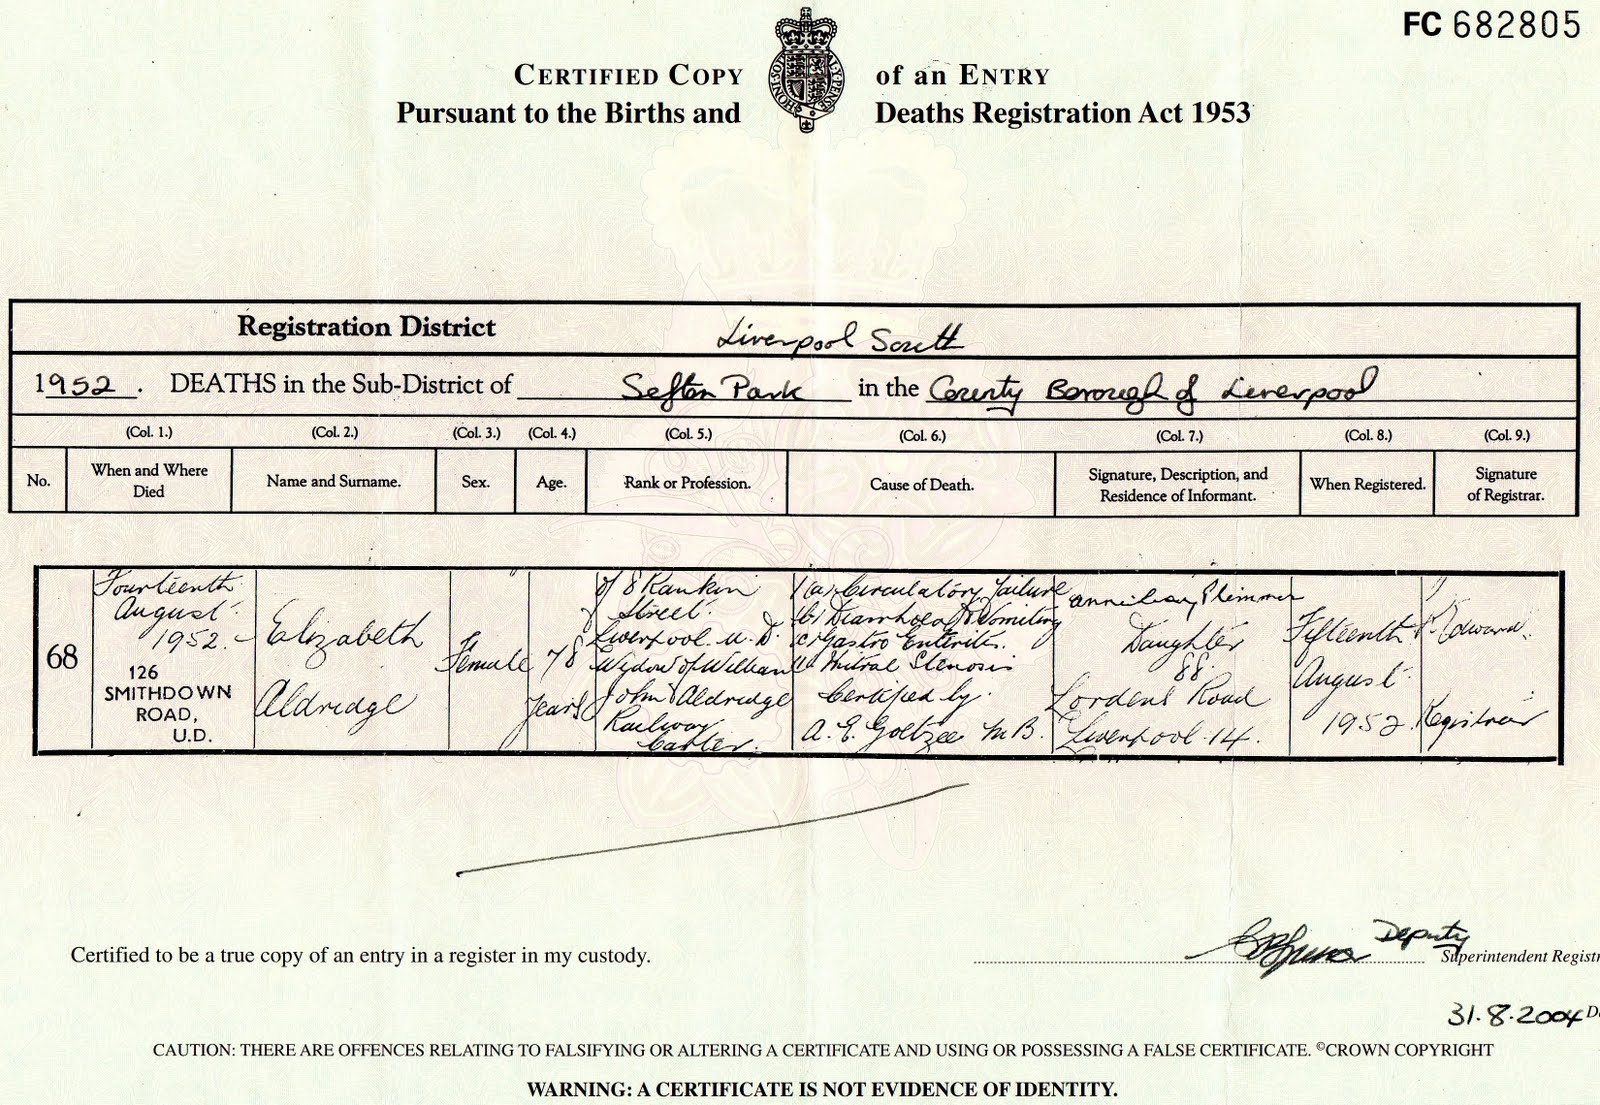 FC 682805
CERTIFIED COPY of an ENTRY
Pursuant to the Births and Deaths Registration Act 1953
HONI·SOIT
Registration District Liverpool South
1952. DEATHS in the Sub-District of Sefton Park in the County Borough of Liverpool
(Col. 1.) (Col. 2.) (Col. 3.) (Col. 4.) (Col. 5.) (Col. 6.) (Col. 7.) (Col. 8.) (Col. 9.)
No. When and Where Died Name and Surname. Sex. Age. Rank or Profession. Cause of Death. Signature, Description, and Residence of Informant. When Registered. Signature of Registrar.
68
Fourteenth
August
1952
126
SMITHDOWN
ROAD,
U.D.
Elizabeth
Aldridge
Female
78
years
of 8 Rankin
Street
Liverpool U.D.
Widow of William
John Aldridge
Railway
Carter.
1(a) Circulatory Failure
(b) Diarrhoea & Vomiting
(c) Gastro Enteritis.
11 Mitral Stenosis
Certified by
A. E. Goltzee M.B.
Plimmer
Daughter
88
Lordens Road
Liverpool 14.
Fifteenth
August
1952.
Edward
Registrar
Certified to be a true copy of an entry in a register in my custody.
Deputy
Superintendent Regist
31.8.2004 D
CAUTION: THERE ARE OFFENCES RELATING TO FALSIFYING OR ALTERING A CERTIFICATE AND USING OR POSSESSING A FALSE CERTIFICATE. ©CROWN COPYRIGHT
WARNING: A CERTIFICATE IS NOT EVIDENCE OF IDENTITY.